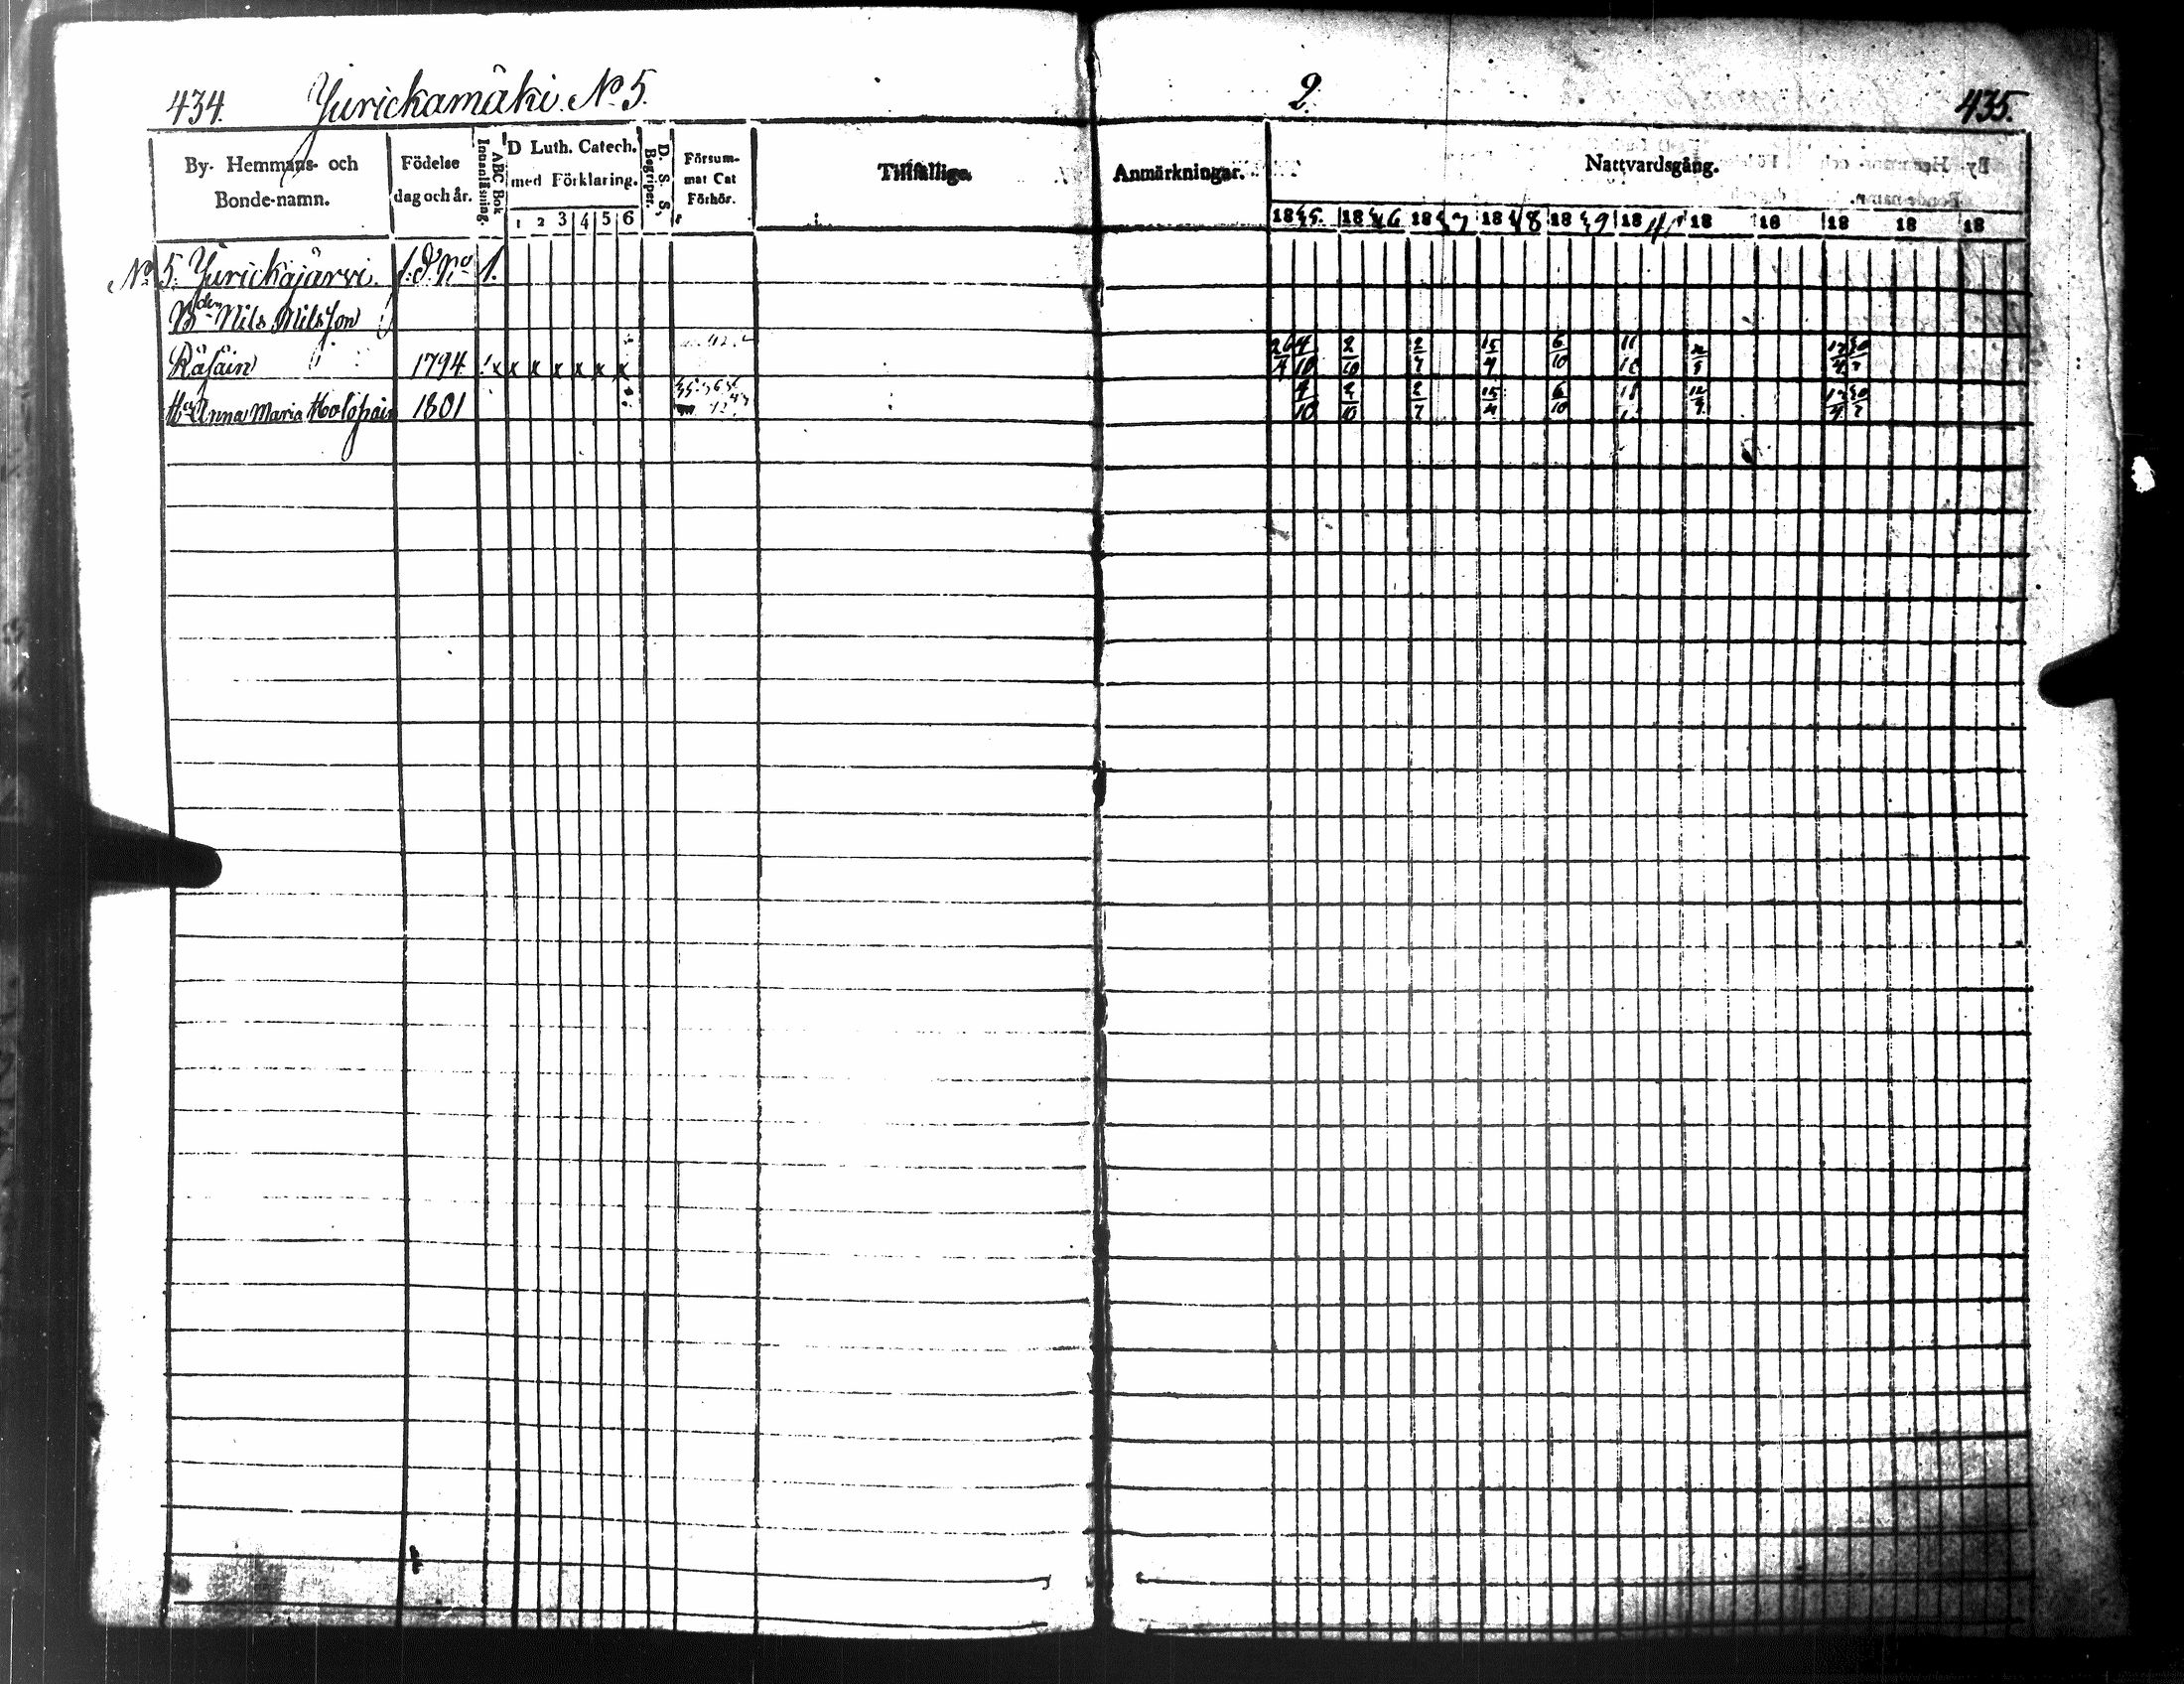 434. Jurickamäki. No 5.
2.
435.
By- Hemmans- och Bonde-namn.
Födelse dag och år.
ABC Bok Innanläsning.
D Luth. Catech. med Förklaring.
1 2 3 4 5 6
D. S. S. Begriper.
Försummat Cat Förhör.
Tillfällige.
Anmärkningar.
Nattvardsgång.
1835. 1836 1837 1838 1839 18 18 18 18 18 18
No 5. Jurickajärvi. 1.
Bden Nils Nilsson
Räsäin 1794 x x x x x x x 4/10 2/10 2/7 15/4 6/10
Hu Anna Maria Holopain 1801 4/10 2/10 2/7 15/4 6/10 12/9